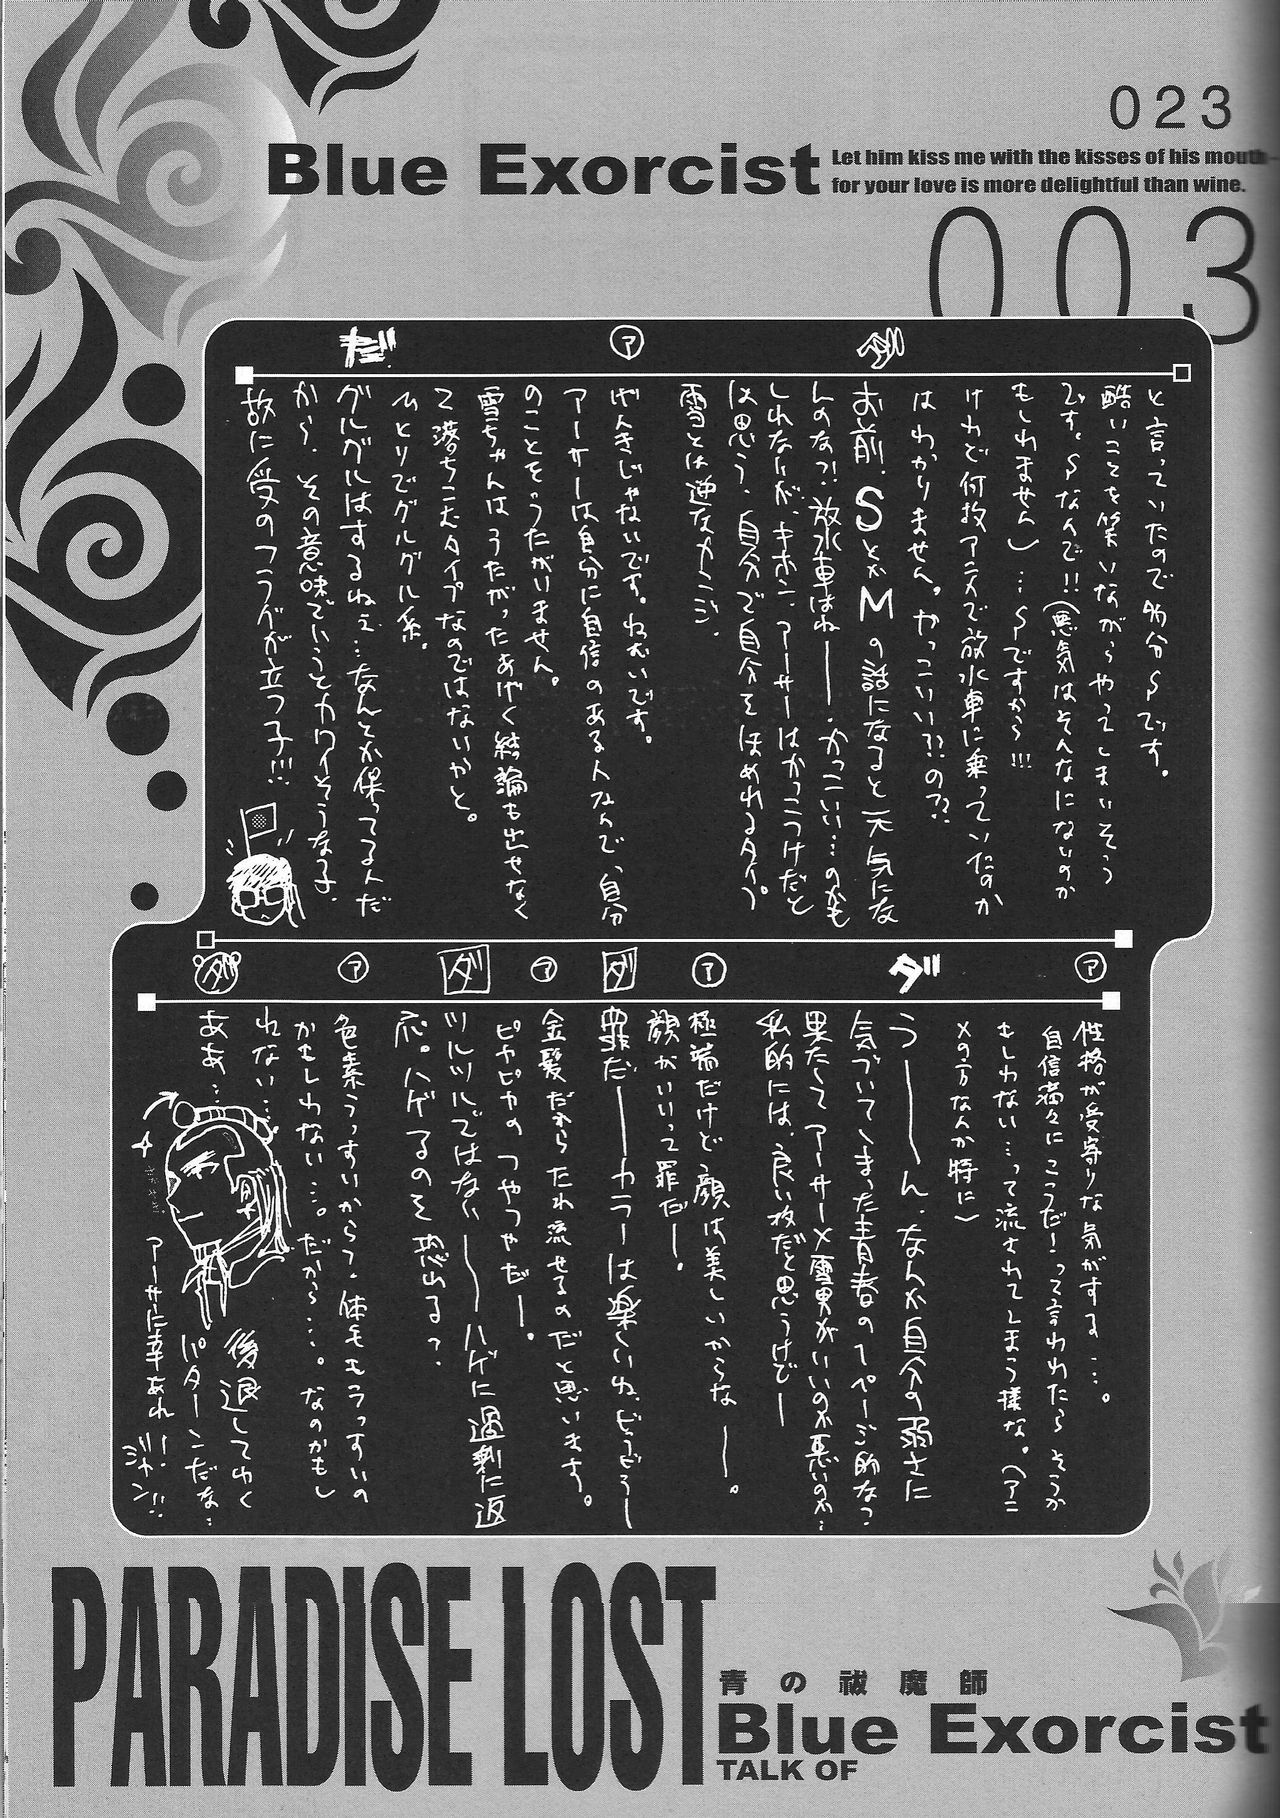 023
Blue Exorcist
Let him kiss me with the kisses of his mouth-
for your love is more delightful than wine.
003
ダ
ア
だ
と言っていたので多分Sです。
酷いことを笑いながらやってしまいそう
です。Sなんで!!(悪気はそんなにないのか
もしれません)…Sですから!!!
けれど何故アニメで放水車に乗っていたのか
はわかりません。やっこいい??の??
お前、SとかMの話になると元気にな
んのな?!放水車はねー、かっこいい…のかも
しれないが、キホン、アーサーはかっこつけだと
は思う、自分で自分をほめれるタイプ
雪とは逆なカンジ、
げんきじゃないです。ねむいです。
アーサーは自分に自信のある人なんで、自分
のことをうたがいません。
雪ちゃんはうたがったあげく結論も出せなく
て落ちこむタイプなのではないかと。
ひとりでグルグル系。
グルグルはするねぇ…なんとか保ってる人だ
から、その意味でいうとカワイそうな子、
故に受のフラグが立つ子!!!
ア
ダ
ア
ダ
ア
ダ
ア
ダ
性格が受寄りな気がする…。
自信満々にこうだ!って言われたらそうか
もしれない…って流されてしまう様な。(アニ
メの方なんか特に)
うーーん、なんか自分の弱さに
気づいてしまった青春の1ページ的な?
果たしてアーサー×雪男がいいのか悪いのか…
私的には、良い攻だと思うけどー
極端だけど顔は美しいからなー。
顔がいいって罪だー。
罪だーーカラーは楽しいね、どうどうー
金髪だからたれ流せるのだと思います。
ピカピカのつやつやだー。
ツルツルではないーーハゲに過剰に返
応。ハゲるのを恐れる?
色素うっすいから?、体毛もうっすいの
かもしれない…。だから…。なのかもし
れない…
ああ…
後退してゆく
パターンだな…
アーサーに幸あれ!
ジャン!!
PARADISE LOST
青の祓魔師
Blue Exorcist
TALK OF